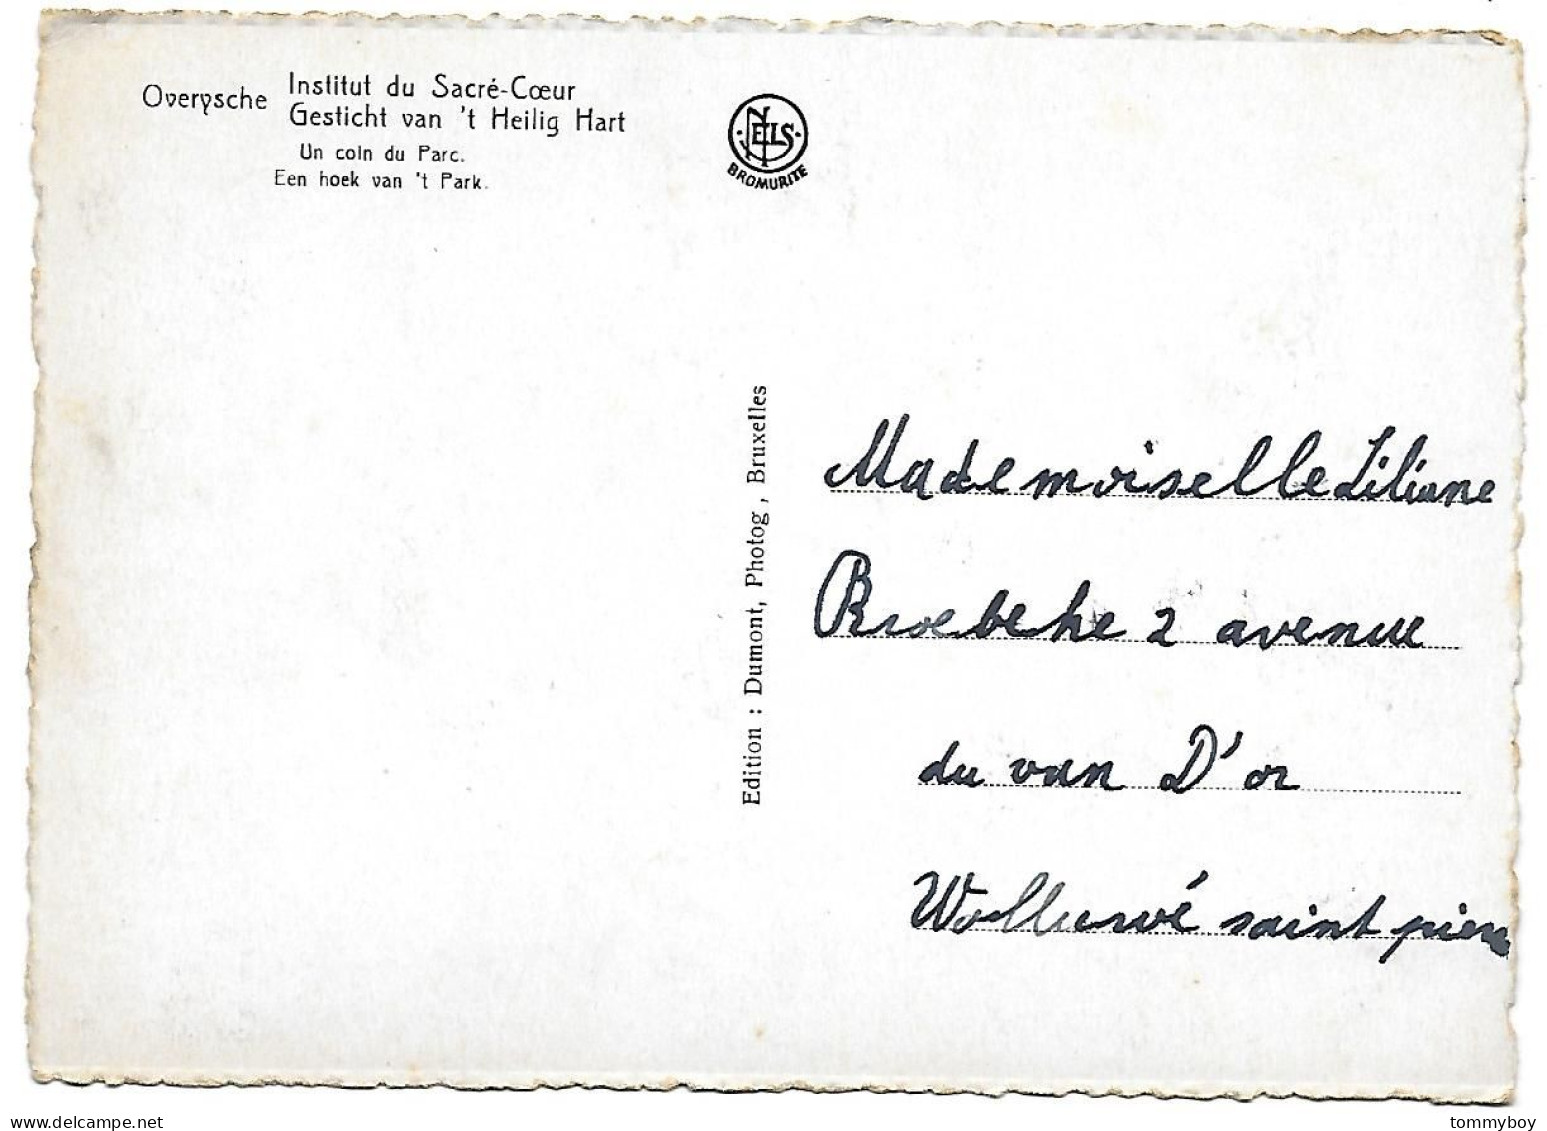 Overysche
Institut du Sacré-Cœur
Gesticht van 't Heilig Hart
Un coin du Parc.
Een hoek van 't Park.
NELS
BROMURITE
Edition : Dumont, Photog, Bruxelles
Mademoiselle Liliane
Broebeke 2 avenue
du van D'or
Wolluwé saint pierre
delcampe.net
tommyboy